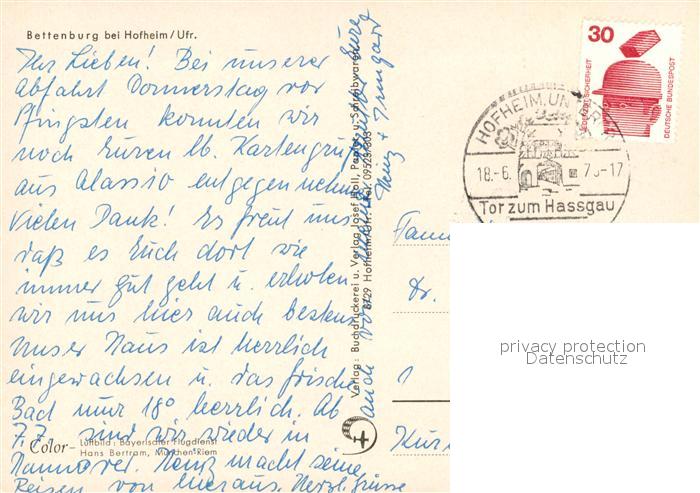 Bettenburg bei Hofheim/Ufr.
Ihr Lieben! Bei unserer
Abfahrt Donnerstag vor
Pfingsten konnten wir
noch Euren lb. Kartengruß
aus Alassio entgegennehmen
Vielen Dank! Es freut uns
daß es Euch dort wie
immer gut geht u. erholen
wir uns hier auch bestens
Unser Haus ist herrlich
eingewachsen u. das frische
Bad nur 18° herrlich. Ab
7.7. sind wir wieder in
Hannover. Heinz macht seine
Reisen von hier aus. Herzl. Grüsse
auch von Eurer
Heinz + Irmgard
Color-
Luftbild: Bayerischer Flugdienst
Hans Bertram, München-Riem
Verlag: Buchdruckerei u. Verlag Josef Holl, Papier- u. Schreibwaren
8729 Hofheim/Ufr. Tel. 09523/303
30
JEDERZEIT SICHERHEIT
DEUTSCHE BUNDESPOST
HOFHEIM, UNTERFR
18.-6. 75-17
Tor zum Hassgau
Dr.
1
privacy protection
Datenschutz